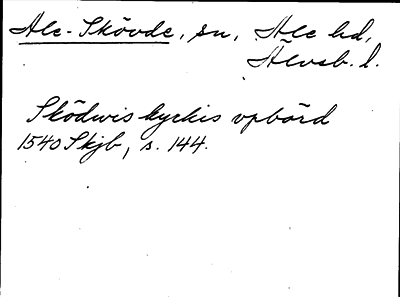 Ale-Skövde, sn, Ale hd,
Älvsb. l.
Sködwis kyrkis vpbörd
1540 Skjb, s. 144.